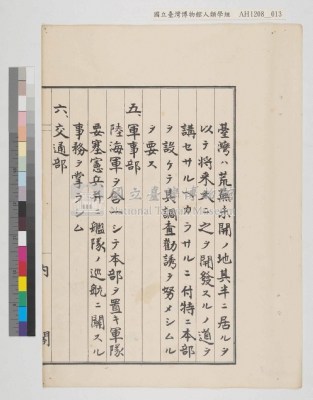 國立臺灣博物館人類學組 AH1208_013
臺灣ハ荒蕪未開ノ地其半ニ居ルヲ
以テ將來大ニ之ヲ開發スルノ道ヲ
講セサルヘカラサルニ付特ニ本部
ヲ設ケテ其調査勸誘ヲ努メシムル
ヲ要ス
五、軍事部
陸海軍ヲ合シテ本部ヲ置キ軍隊
要塞憲兵并ニ艦隊ノ巡航ニ關スル
事務ヲ掌ラシム
六、交通部
内閣
國立臺灣博物館
National Taiwan Museum